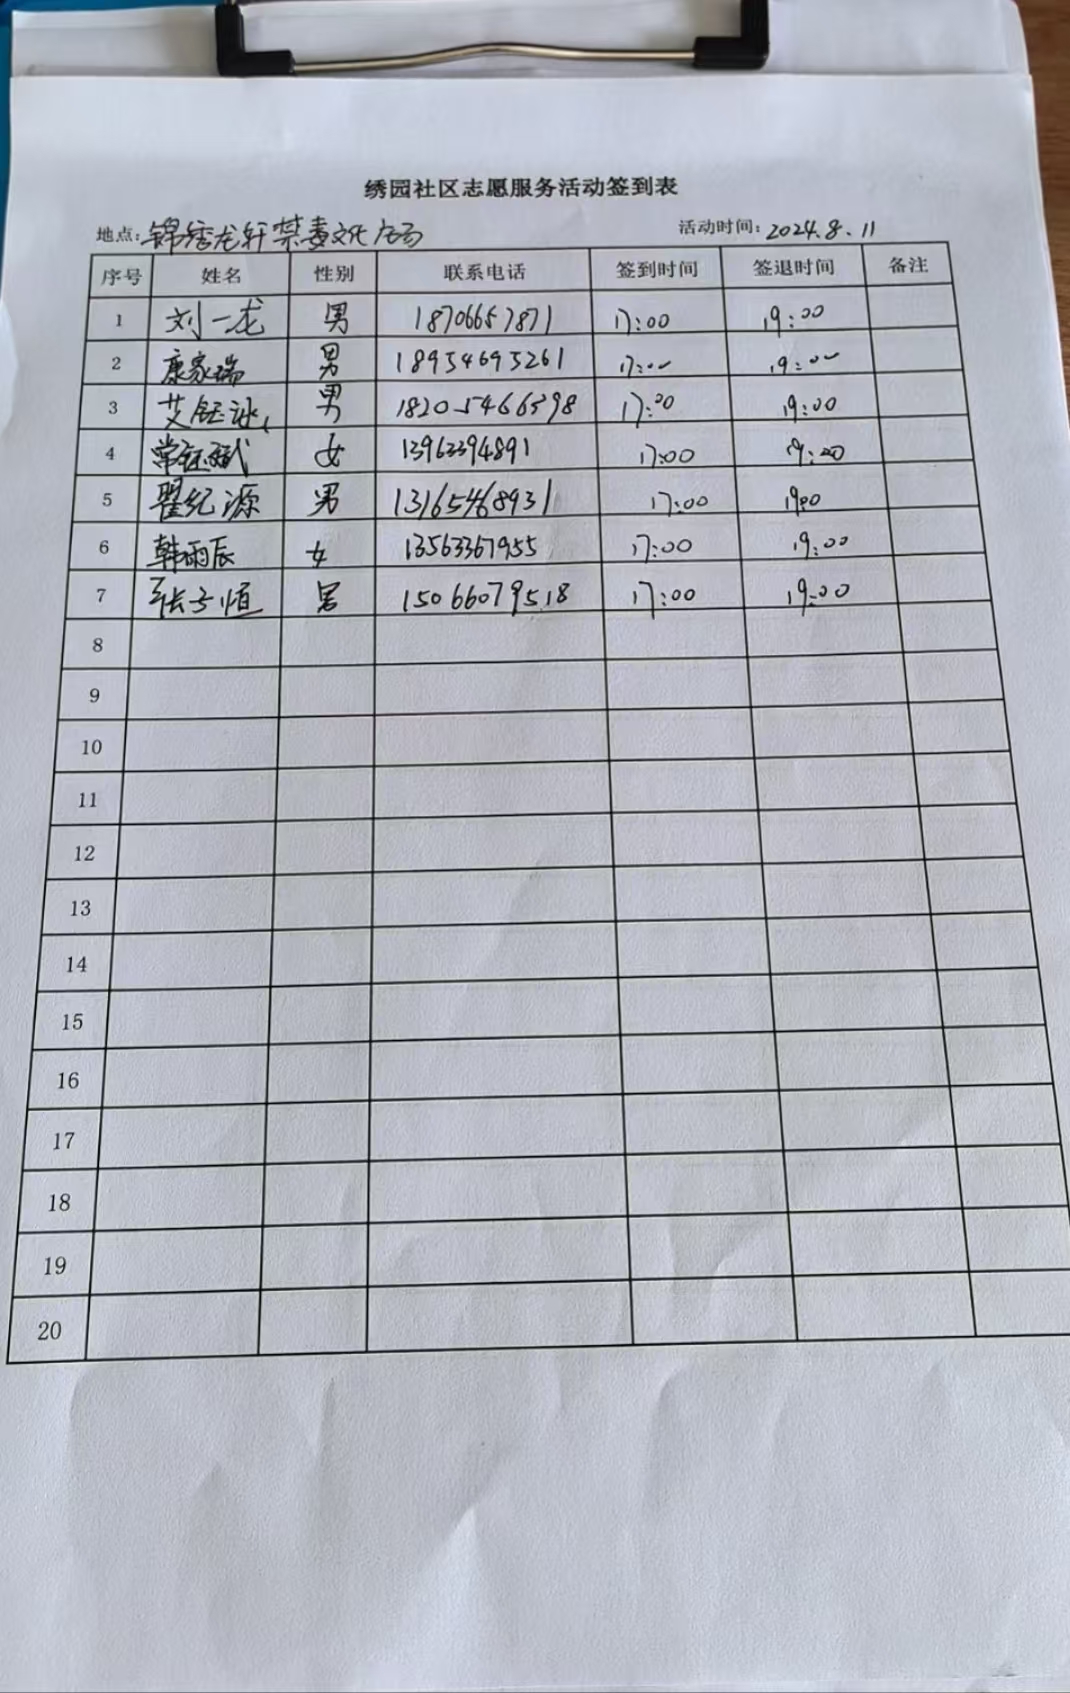 绣园社区志愿服务活动签到表
地点:锦绣龙轩禁毒文化广场 活动时间:2024.8.11
序号 姓名 性别 联系电话 签到时间 签退时间 备注
1 刘一龙 男 18706657871 17:00 19:00
2 康家瑞 男 18954695261 17:00 19:00
3 艾钰 男 18205466398 17:00 19:00
4 常钰斌 女 13963394891 17:00 19:00
5 翟纪源 男 13165468931 17:00 19:00
6 韩雨辰 女 13563367955 17:00 19:00
7 张子恒 男 15066079518 17:00 19:00
8
9
10
11
12
13
14
15
16
17
18
19
20